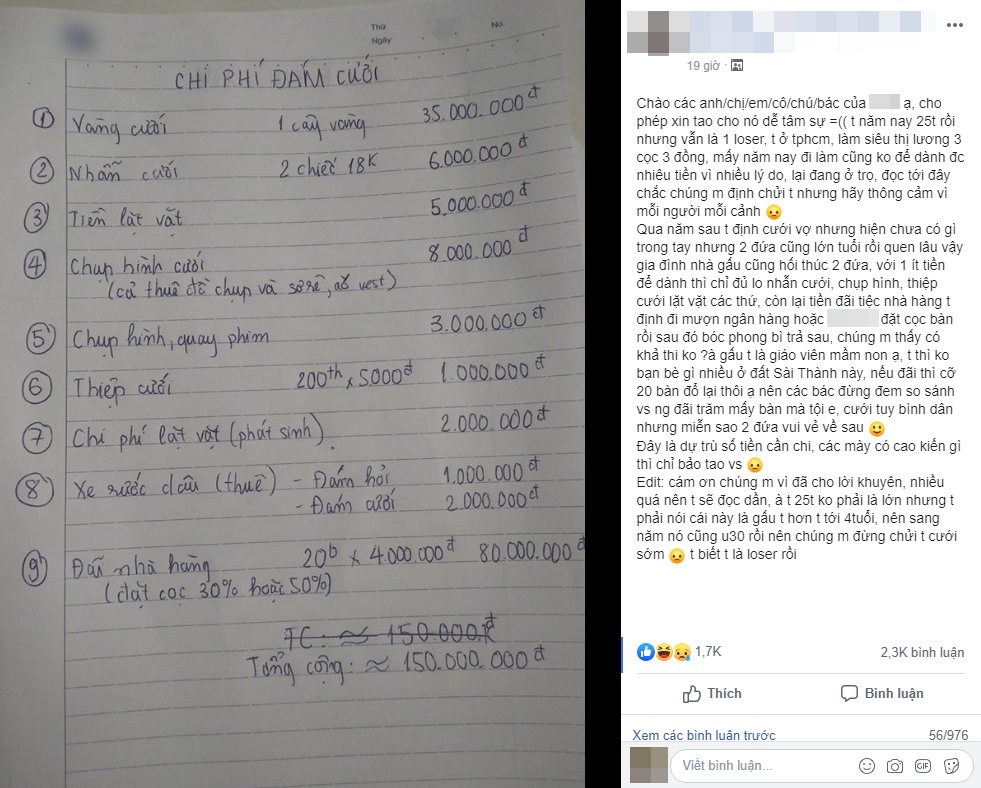 Thứ
Ngày
No.
CHI PHÍ ĐÁM CƯỚI
① Vàng cưới 1 cây vàng 35.000.000đ
② Nhẫn cưới 2 chiếc 18K 6.000.000đ
③ Tiền lặt vặt 5.000.000đ
④ Chụp hình cưới 8.000.000đ
(cả thuê đồ chụp và sơrê, áo vest)
⑤ Chụp hình, quay phim 3.000.000đ
⑥ Thiệp cưới 200th x 5000đ 1.000.000đ
⑦ Chi phí lặt vặt (phát sinh). 2.000.000đ
⑧ Xe rước dâu (thuê) - Đám hỏi 1.000.000đ
- Đám cưới 2.000.000đ
⑨ Đãi nhà hàng 20b x 4.000.000đ 80.000.000đ
(đặt cọc 30% hoặc 50%)
TC: ≈ 150.000K đ
Tổng cộng: ≈ 150.000.000đ
19 giờ ·
Chào các anh/chị/em/cô/chú/bác của ạ, cho
phép xin tao cho nó dễ tâm sự =(( t năm nay 25t rồi
nhưng vẫn là 1 loser, t ở tphcm, làm siêu thị lương 3
cọc 3 đồng, mấy năm nay đi làm cũng ko để dành đc
nhiêu tiền vì nhiều lý do, lại đang ở trọ, đọc tới đây
chắc chúng m định chửi t nhưng hãy thông cảm vì
mỗi người mỗi cảnh 😟
Qua năm sau t định cưới vợ nhưng hiện chưa có gì
trong tay nhưng 2 đứa cũng lớn tuổi rồi quen lâu vậy
gia đình nhà gấu cũng hối thúc 2 đứa, với 1 ít tiền
để dành thì chỉ đủ lo nhẫn cưới, chụp hình, thiệp
cưới lặt vặt các thứ, còn lại tiền đãi tiệc nhà hàng t
định đi mượn ngân hàng hoặc đặt cọc bàn
rồi sau đó bóc phong bì trả sau, chúng m thấy có
khả thi ko ?à gấu t là giáo viên mầm non ạ, t thì ko
bạn bè gì nhiều ở đất Sài Thành này, nếu đãi thì cỡ
20 bàn đổ lại thôi ạ nên các bác đừng đem so sánh
vs ng đãi trăm mấy bàn mà tội e, cưới tuy bình dân
nhưng miễn sao 2 đứa vui vẻ về sau 😀
Đây là dự trù số tiền cần chi, các mày có cao kiến gì
thì chỉ bảo tao vs 😟
Edit: cám ơn chúng m vì đã cho lời khuyên, nhiều
quá nên t sẽ đọc dần, à t 25t ko phải là lớn nhưng t
phải nói cái này là gấu t hơn t tới 4tuổi, nên sang
năm nó cũng u30 rồi nên chúng m đừng chửi t cưới
sớm 😟 t biết t là loser rồi
1,7K
2,3K bình luận
Thích
Bình luận
Xem các bình luận trước
56/976
Viết bình luận...
GIF